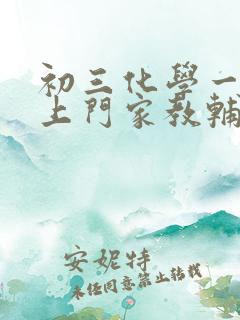 初三化學一
上門家教輔
安妮特
未经同意禁止转载